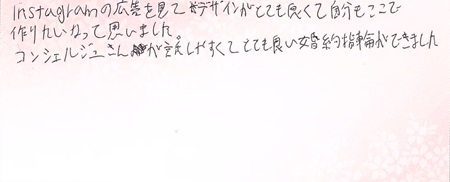 Instagramの広告を見てデザインがとても良くて自分もここで
作りたいなって思いました。
コンシェルジュさんが話しやすくてとても良い婚約指輪ができました